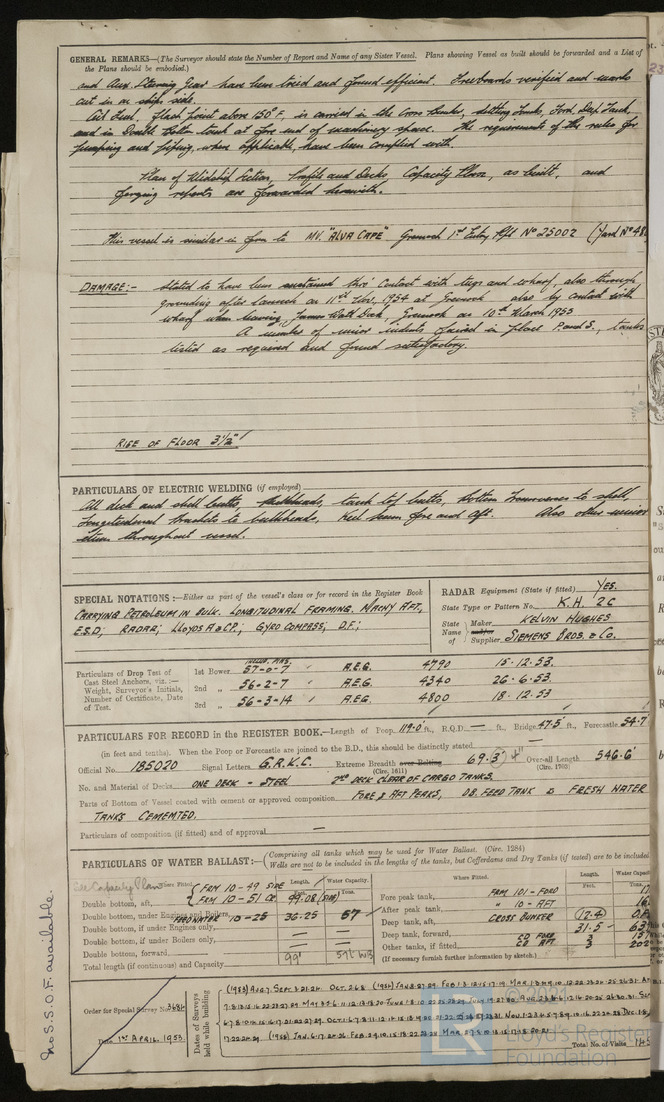 GENERAL REMARKS—(The Surveyor should state the Number of Report and Name of any Sister Vessel. Plans showing Vessel as built should be forwarded and a List of
the Plans should be embodied.)
and Aux. Steering Gear have been tried and found efficient. Freeboards verified and marks
cut in on ship's side.
Oil Fuel, Flash point above 150°F, is carried in the Cross Bunker, Settling Tanks, Ford. Deep Tank
and in Double Bottom tank at fore end of machinery space. The requirements of the rules for
pumping and piping, where applicable, have been complied with.
Plan of Midship Section, Profile and Decks, Capacity Plan, as built, and
forging reports are forwarded herewith.
This vessel is similar in form to MV. "ALVA CAPE" Greenock 1st Entry Rpt No 25002 (Yard No 48
DAMAGE:- Stated to have been sustained thro' Contact with tugs and wharf, also through
grounding after launch on 11th Nov. 1954 at Greenock also by contact with
wharf when leaving James Watt Dock, Greenock on 10th March 1955
A number of minor indents faired in place P. and S., tanks
tested as required and found satisfactory.
RISE OF FLOOR 3½"
PARTICULARS OF ELECTRIC WELDING (if employed)
All deck and shell butts, bulkheads, tank top butts, bottom transverses to shell,
Longitudinal brackets to bulkheads, Keel seam fore and aft. Also other minor
items throughout vessel.
SPECIAL NOTATIONS:—Either as part of the vessel's class or for record in the Register Book
CARRYING PETROLEUM IN BULK. LONGITUDINAL FRAMING. MACHY AFT,
E.S.D, RADAR; LLOYDS A & CP.; GYRO COMPASS, D.F.;
RADAR Equipment (State if fitted) YES.
State Type or Pattern No. K.H. 2C
State Name of Maker KELVIN HUGHES
and/or Supplier SIEMENS BROS. & Co.
Particulars of Drop Test of
Cast Steel Anchors, viz.:—
Weight, Surveyor's Initials,
Number of Certificate, Date
of Test.
1st Bower 57-0-7 A.E.G. 4790 15.12.53.
2nd „ 56-2-7 A.E.G. 4340 26.6.53.
3rd „ 56-3-14 A.E.G. 4800 18.12.53
PARTICULARS FOR RECORD in the REGISTER BOOK.—Length of Poop 119.0 ft., R.Q.D. — ft., Bridge 47.5 ft., Forecastle 54.7
(in feet and tenths). When the Poop or Forecastle are joined to the B.D., this should be distinctly stated —
Official No. 185020 Signal Letters G.R.K.C. Extreme Breadth over Belting 69.3 Over-all Length 546.6
(Circ. 1611) (Circ. 1703)
No. and Material of Decks ONE DECK - STEEL 2ND DECK CLEAR OF CARGO TANKS.
Parts of Bottom of Vessel coated with cement or approved composition FORE & AFT PEAKS, DB. FEED TANK & FRESH WATER
TANKS CEMENTED.
Particulars of composition (if fitted) and of approval —
PARTICULARS OF WATER BALLAST:—(Comprising all tanks which may be used for Water Ballast. (Circ. 1284)
Wells are not to be included in the lengths of the tanks, but Cofferdams and Dry Tanks (if tested) are to be included
See Capacity Plan
Where Fitted. Length. Feet. Water Capacity. Tons.
Double bottom, aft, FRM 10-49 SIDE
FRM 10-51 CR 99.08 (SIDE)
Double bottom, under Engines and Boilers, FEEDWATER 10-25 36.25 57
Double bottom, if under Engines only, — —
Double bottom, if under Boilers only, — —
Double bottom, forward — —
Total length (if continuous) and Capacity 99' 57t WB
Where Fitted. Length. Feet. Water Capac Tons.
Fore peak tank, FRM 101 - FORD
After peak tank, „ 10 - AFT
Deep tank, aft, CROSS BUNKER 12.4
Deep tank, forward, 31.5
Other tanks, if fitted, CD FORE 3
CD AFT 3 202
(If necessary furnish further information by sketch.)
Order for Special Survey No. 3681
Date 1ST APRIL, 1953
Dates of Surveys held while building
Total No. of Visits
No S.S.O.F. available.
© 2021
Lloyd's Register
Foundation